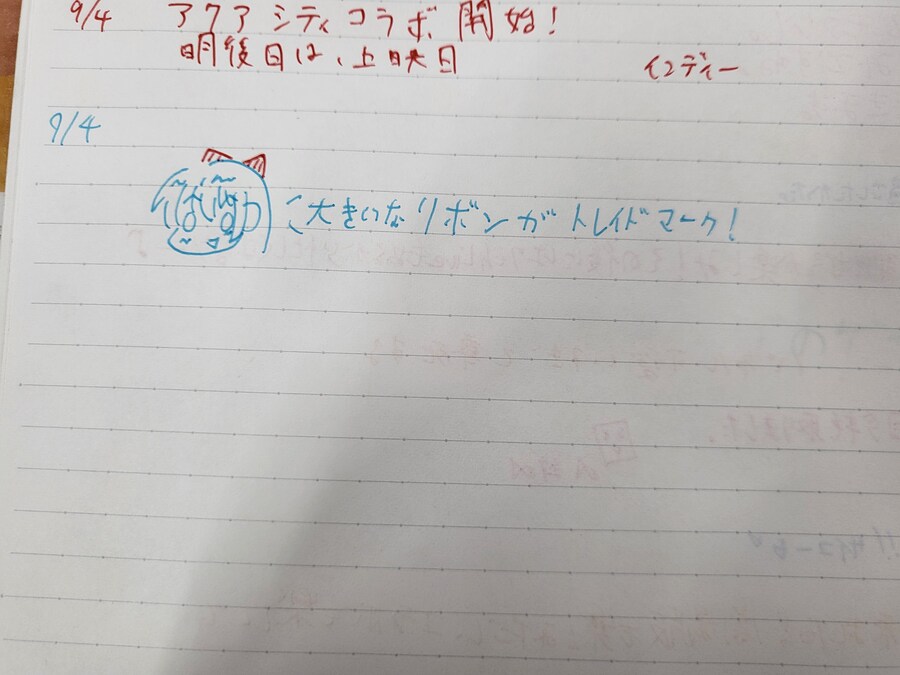 9/4 アクアシティコラボ、開始!
明後日は、上映日 インディー
9/4
大きいなリボンがトレイドマーク!